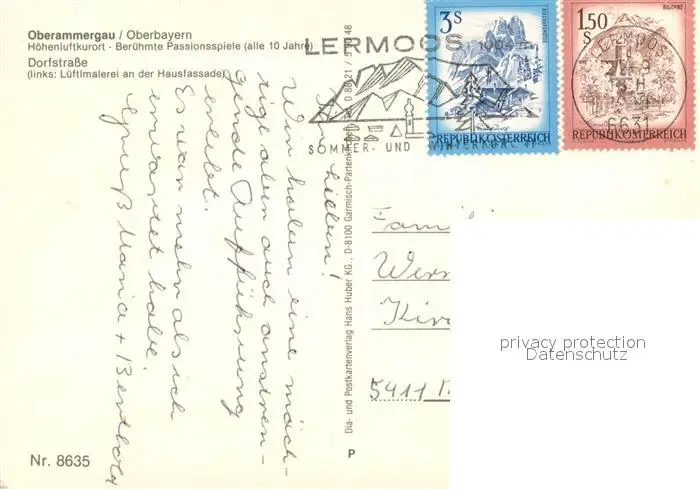 Oberammergau / Oberbayern
Höhenluftkurort - Berühmte Passionsspiele (alle 10 Jahre)
Dorfstraße
(links: Lüftlmalerei an der Hausfassade)
LERMOOS 1004 m
SOMMER- UND WINTERKURORT
3S
REPUBLIK ÖSTERREICH
1.50
S
REPUBLIK ÖSTERREICH
LERMOOS
6631
Ihr Lieben!
Wir haben eine mäch-
tige aber auch anstren-
gende Aufführung
erlebt.
Es war mehr als ich
erwartet habe.
Gruß Maria + Berthold
Dia- und Postkartenverlag Hans Huber KG., D-8100 Garmisch-Partenkirchen
P
Nr. 8635
5411
privacy protection
Datenschutz